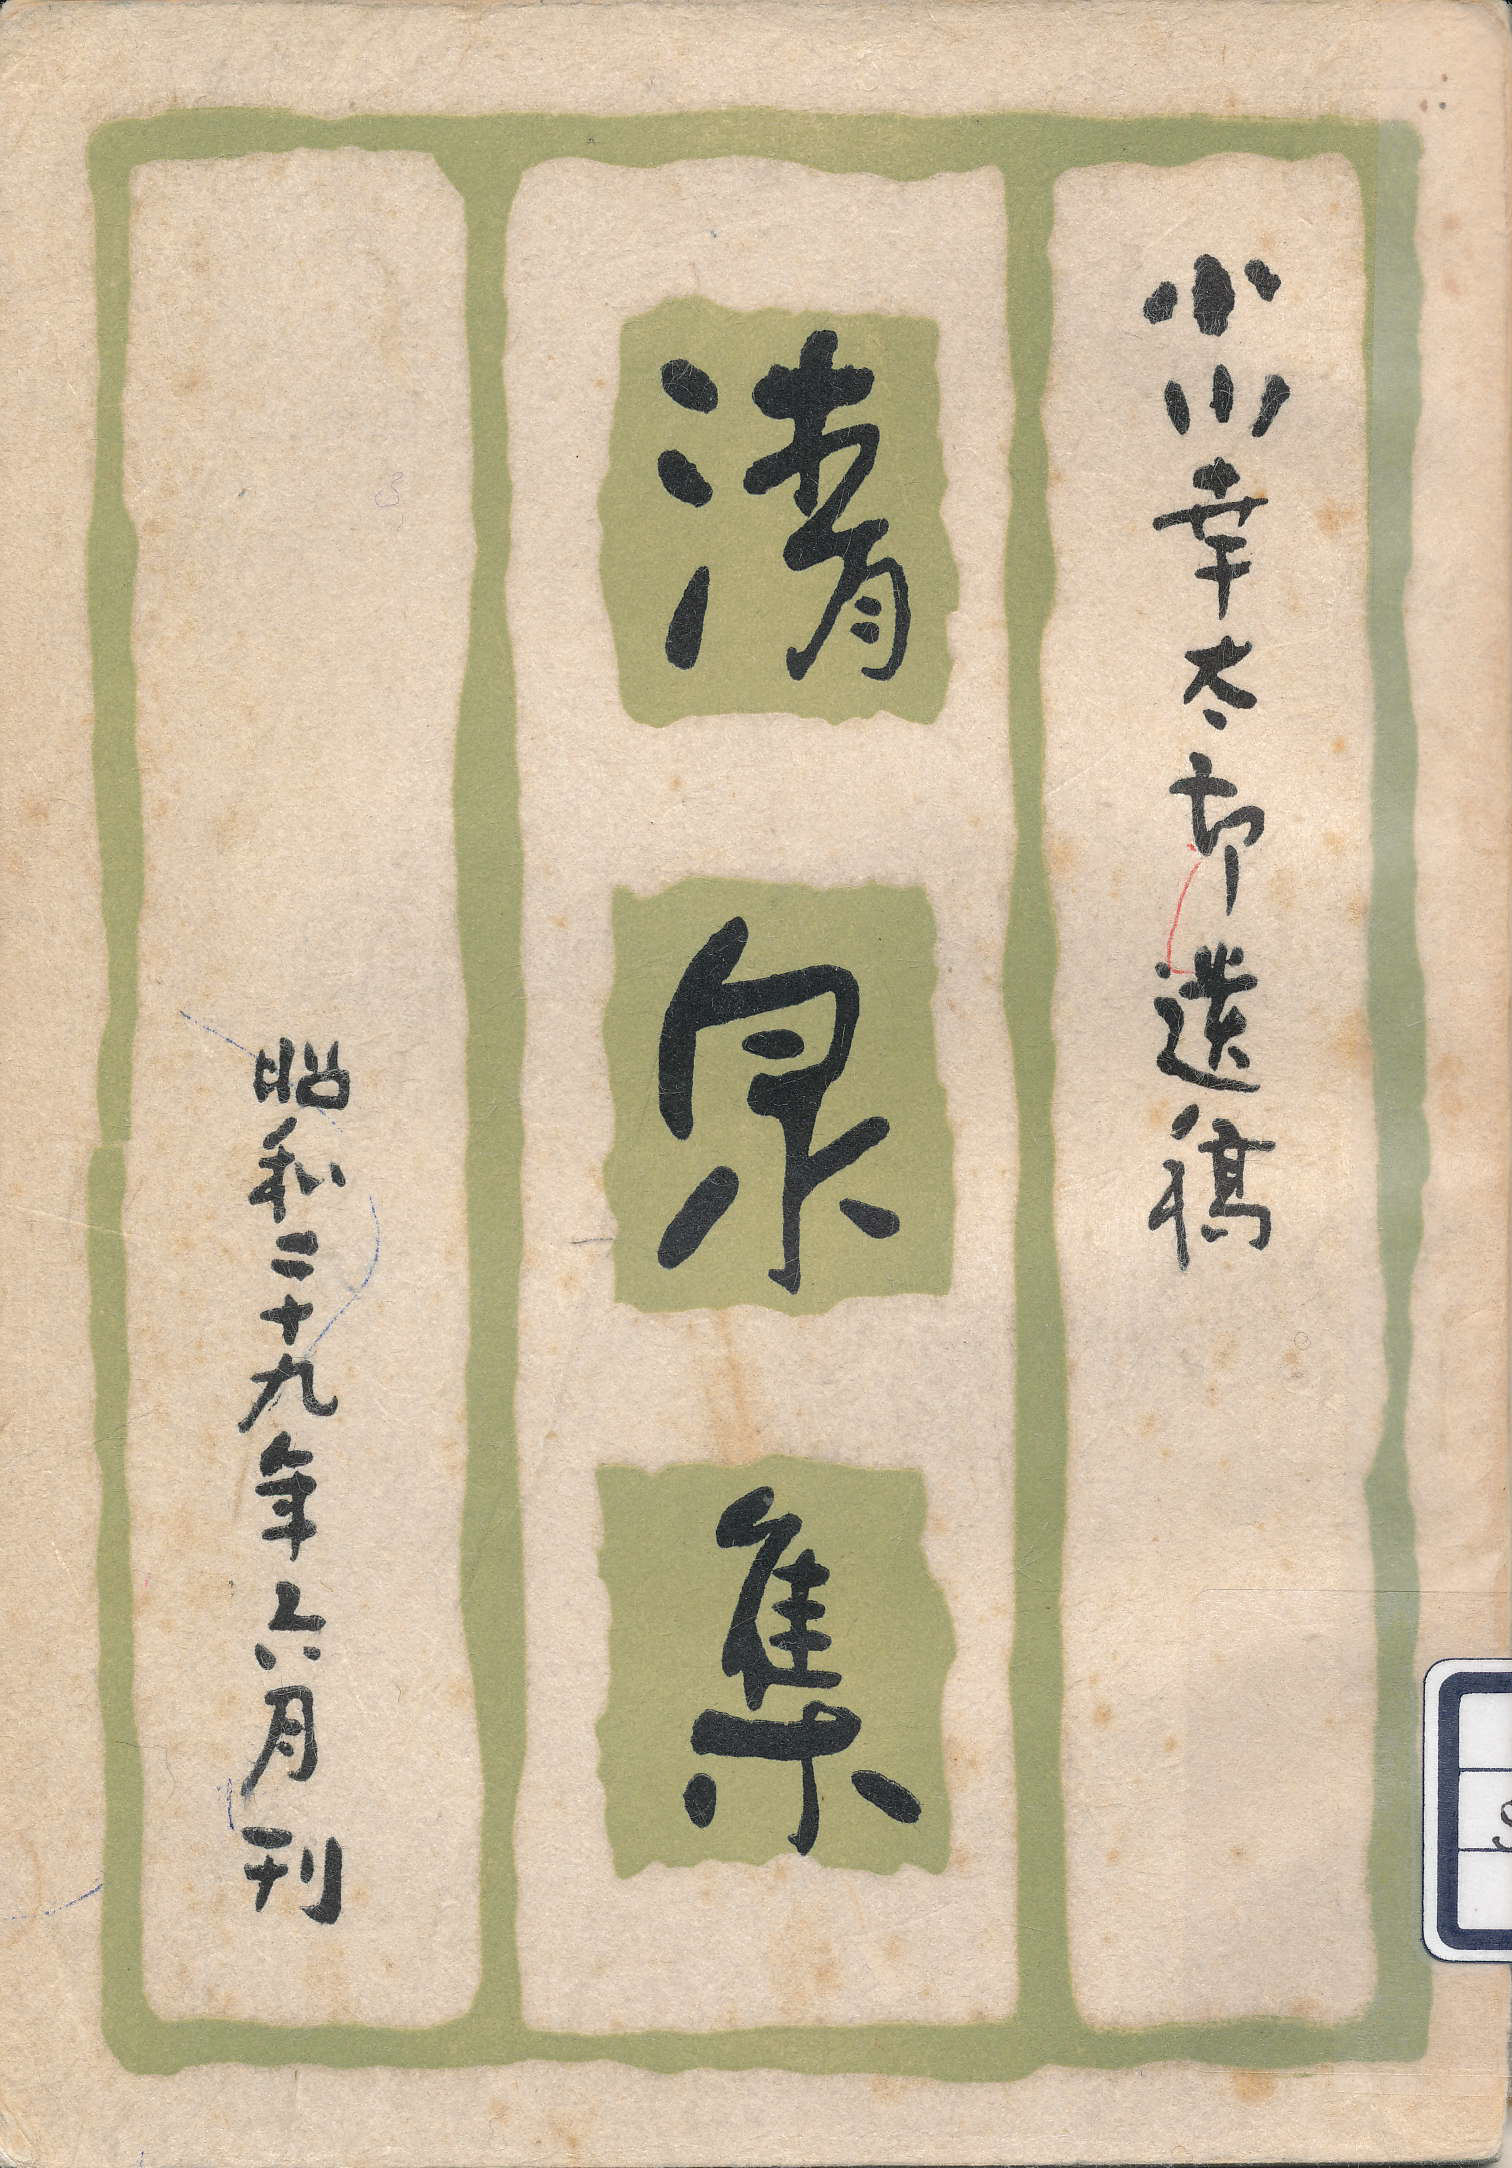 小川幸太郎遺稿
清泉集
昭和二十九年六月刊